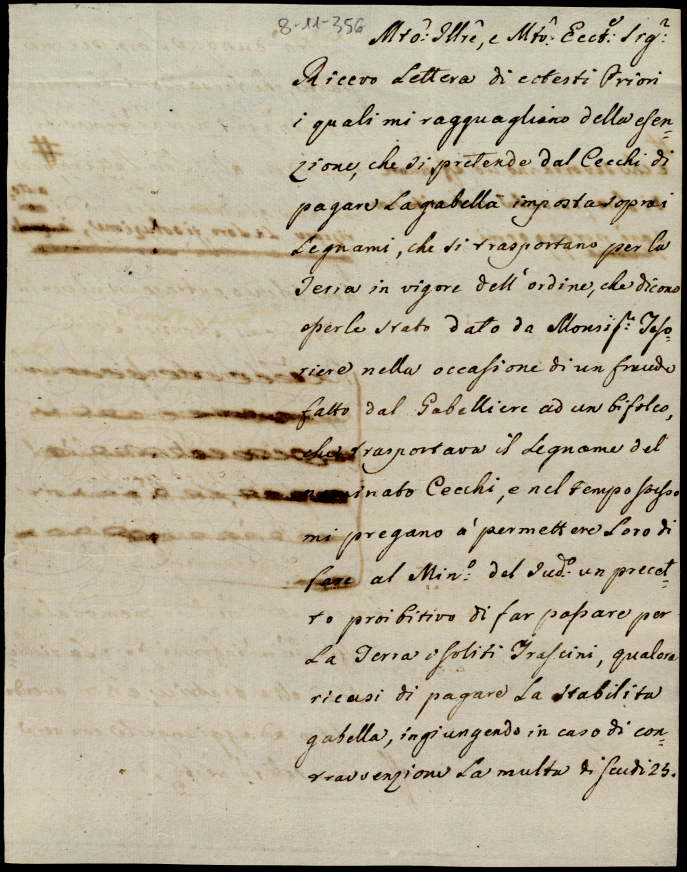 8-11-356
Mto: Illre, e Mto: Eccte Sigr:
Ricevo Lettera di cotesti Priori
i quali mi ragguagliano della esen=
zione, che si pretende dal Cecchi di
pagare La gabella imposta sopra i
Legnami, che si trasportano per la
Terra in vigore dell' ordine, che dicono
esserle stato dato da Monsigre: Teso=
riere nella occasione di un fraudo
fatto dal Gabelliere ad un bifolco,
che trasportava il Legname del
nominato Cecchi, e nel tempo stesso
mi pregano à permettere Loro di
fare al Mino: del Sudo: un precet=
to proibitivo di far passare per
La Terra i soliti Trascini, qualora
ricusi di pagare La stabilita
gabella, ingiungendo in caso di con=
travvenzione La multa di Scudi 25.